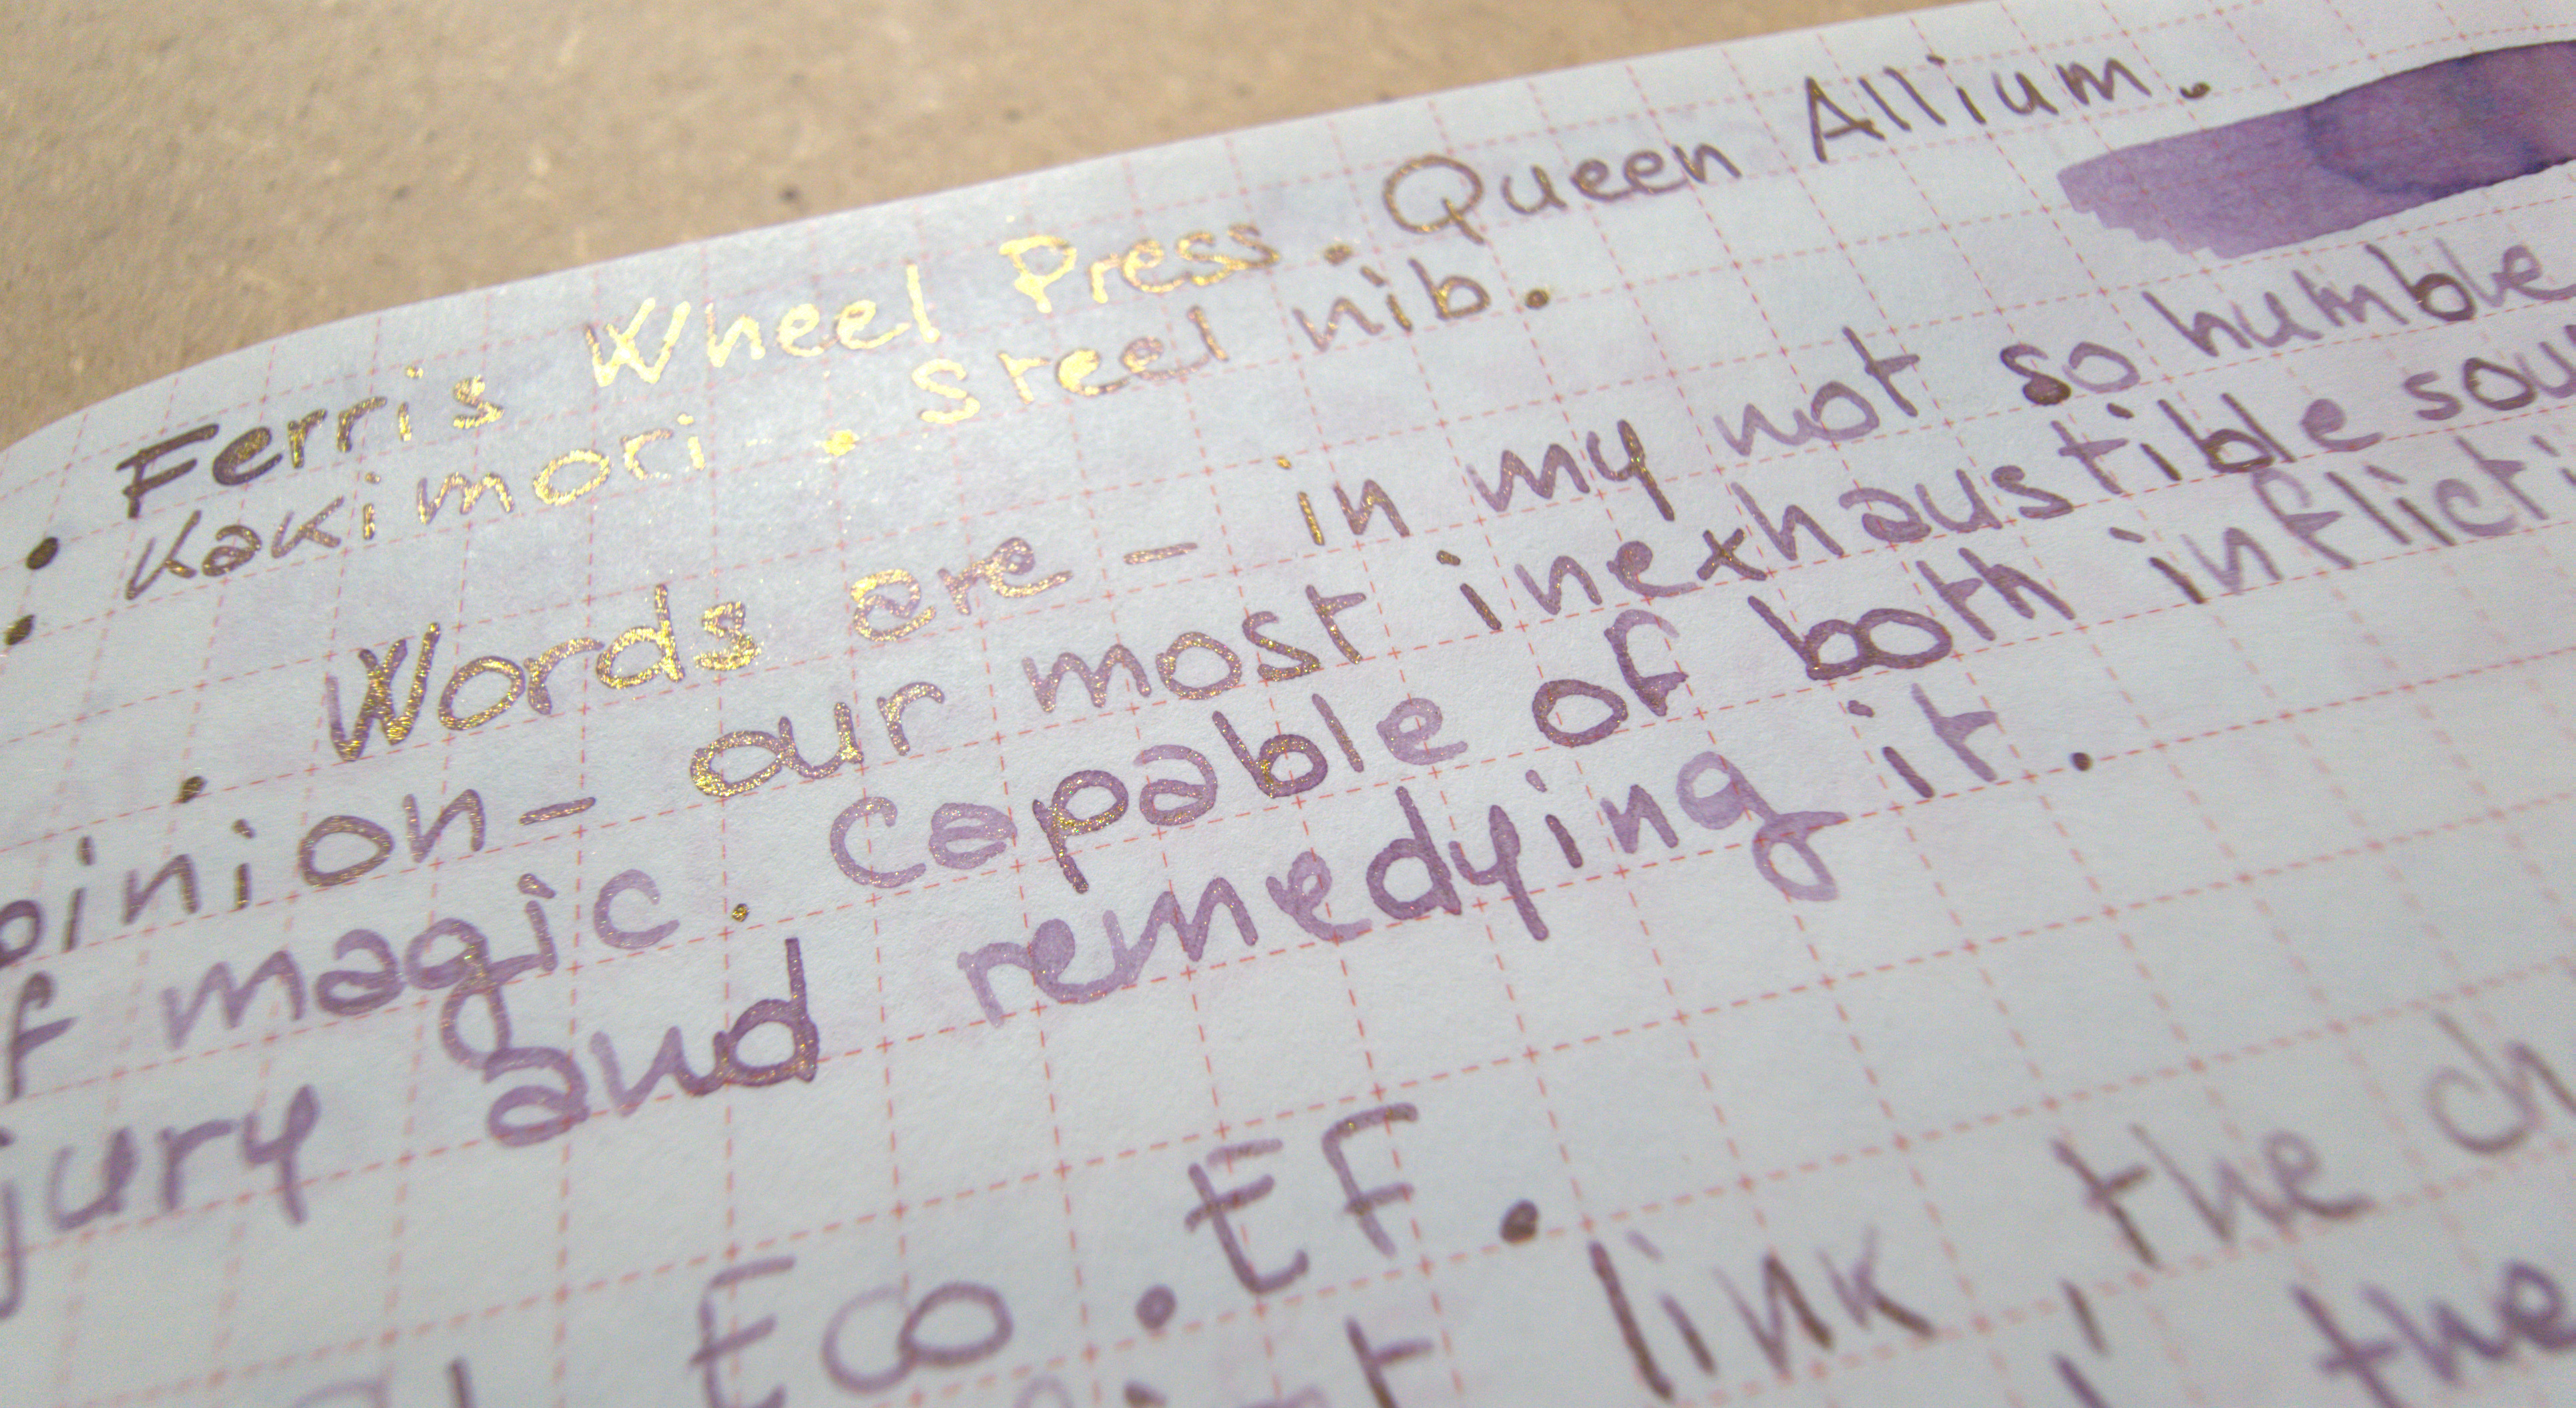 • Ferris Wheel Press. Queen Allium.
• Kakimori. Steel nib.
• Words are - in my not so humble
pinion - our most inexhaustible sou
f magic. Capable of both inflicti
jury and remedying it.
Eco. EF.
link, the ch
the